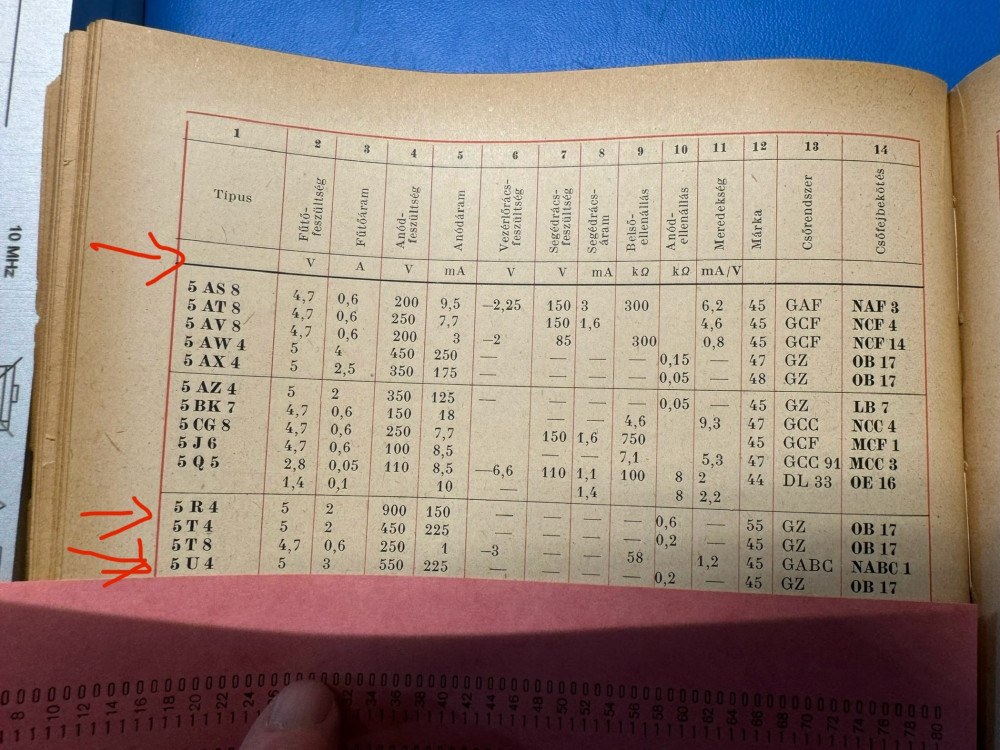 10 MHz
1 2 3 4 5 6 7 8 9 10 11 12 13 14
Típus
Fűtő-
feszültség
Fűtőáram
Anód-
feszültség
Anódáram
Vezérlőrács-
feszültség
Segédrács-
feszültség
Segédrács-
áram
Belső-
ellenállás
Anód-
ellenállás
Meredekség
Márka
Csőrendszer
Csőfejbekötés
V A V mA V V mA kΩ kΩ mA/V
5 AS 8 4,7 0,6 200 9,5 —2,25 150 3 300 6,2 45 GAF NAF 3
5 AT 8 4,7 0,6 250 7,7 150 1,6 4,6 45 GCF NCF 4
5 AV 8 4,7 0,6 200 3 —2 85 300 0,8 45 GCF NCF 14
5 AW 4 5 4 450 250 — — — — 0,15 — 47 GZ OB 17
5 AX 4 5 2,5 350 175 — — — — 0,05 — 48 GZ OB 17
5 AZ 4 5 2 350 125 — — — — 0,05 — 45 GZ LB 7
5 BK 7 4,7 0,6 150 18 — — 4,6 9,3 47 GCC NCC 4
5 CG 8 4,7 0,6 250 7,7 150 1,6 750 45 GCF MCF 1
5 J 6 4,7 0,6 100 8,5 — — 7,1 5,3 47 GCC 91 MCC 3
5 Q 5 2,8 0,05 110 8,5 —6,6 110 1,1 100 8 2 44 DL 33 OE 16
1,4 0,1 10 — 1,4 8 2,2
5 R 4 5 2 900 150 — — — — 0,6 — 55 GZ OB 17
5 T 4 5 2 450 225 — — — — 0,2 — 45 GZ OB 17
5 T 8 4,7 0,6 250 1 —3 — — 58 1,2 45 GABC NABC 1
5 U 4 5 3 550 225 — — — — 0,2 — 45 GZ OB 17
8 10 12 14 16 18 20 22 24 26 32 34 36 38 40 42 44 46 48 50 52 54 56 58 60 62 64 66 68 70 72 74 76 78 80